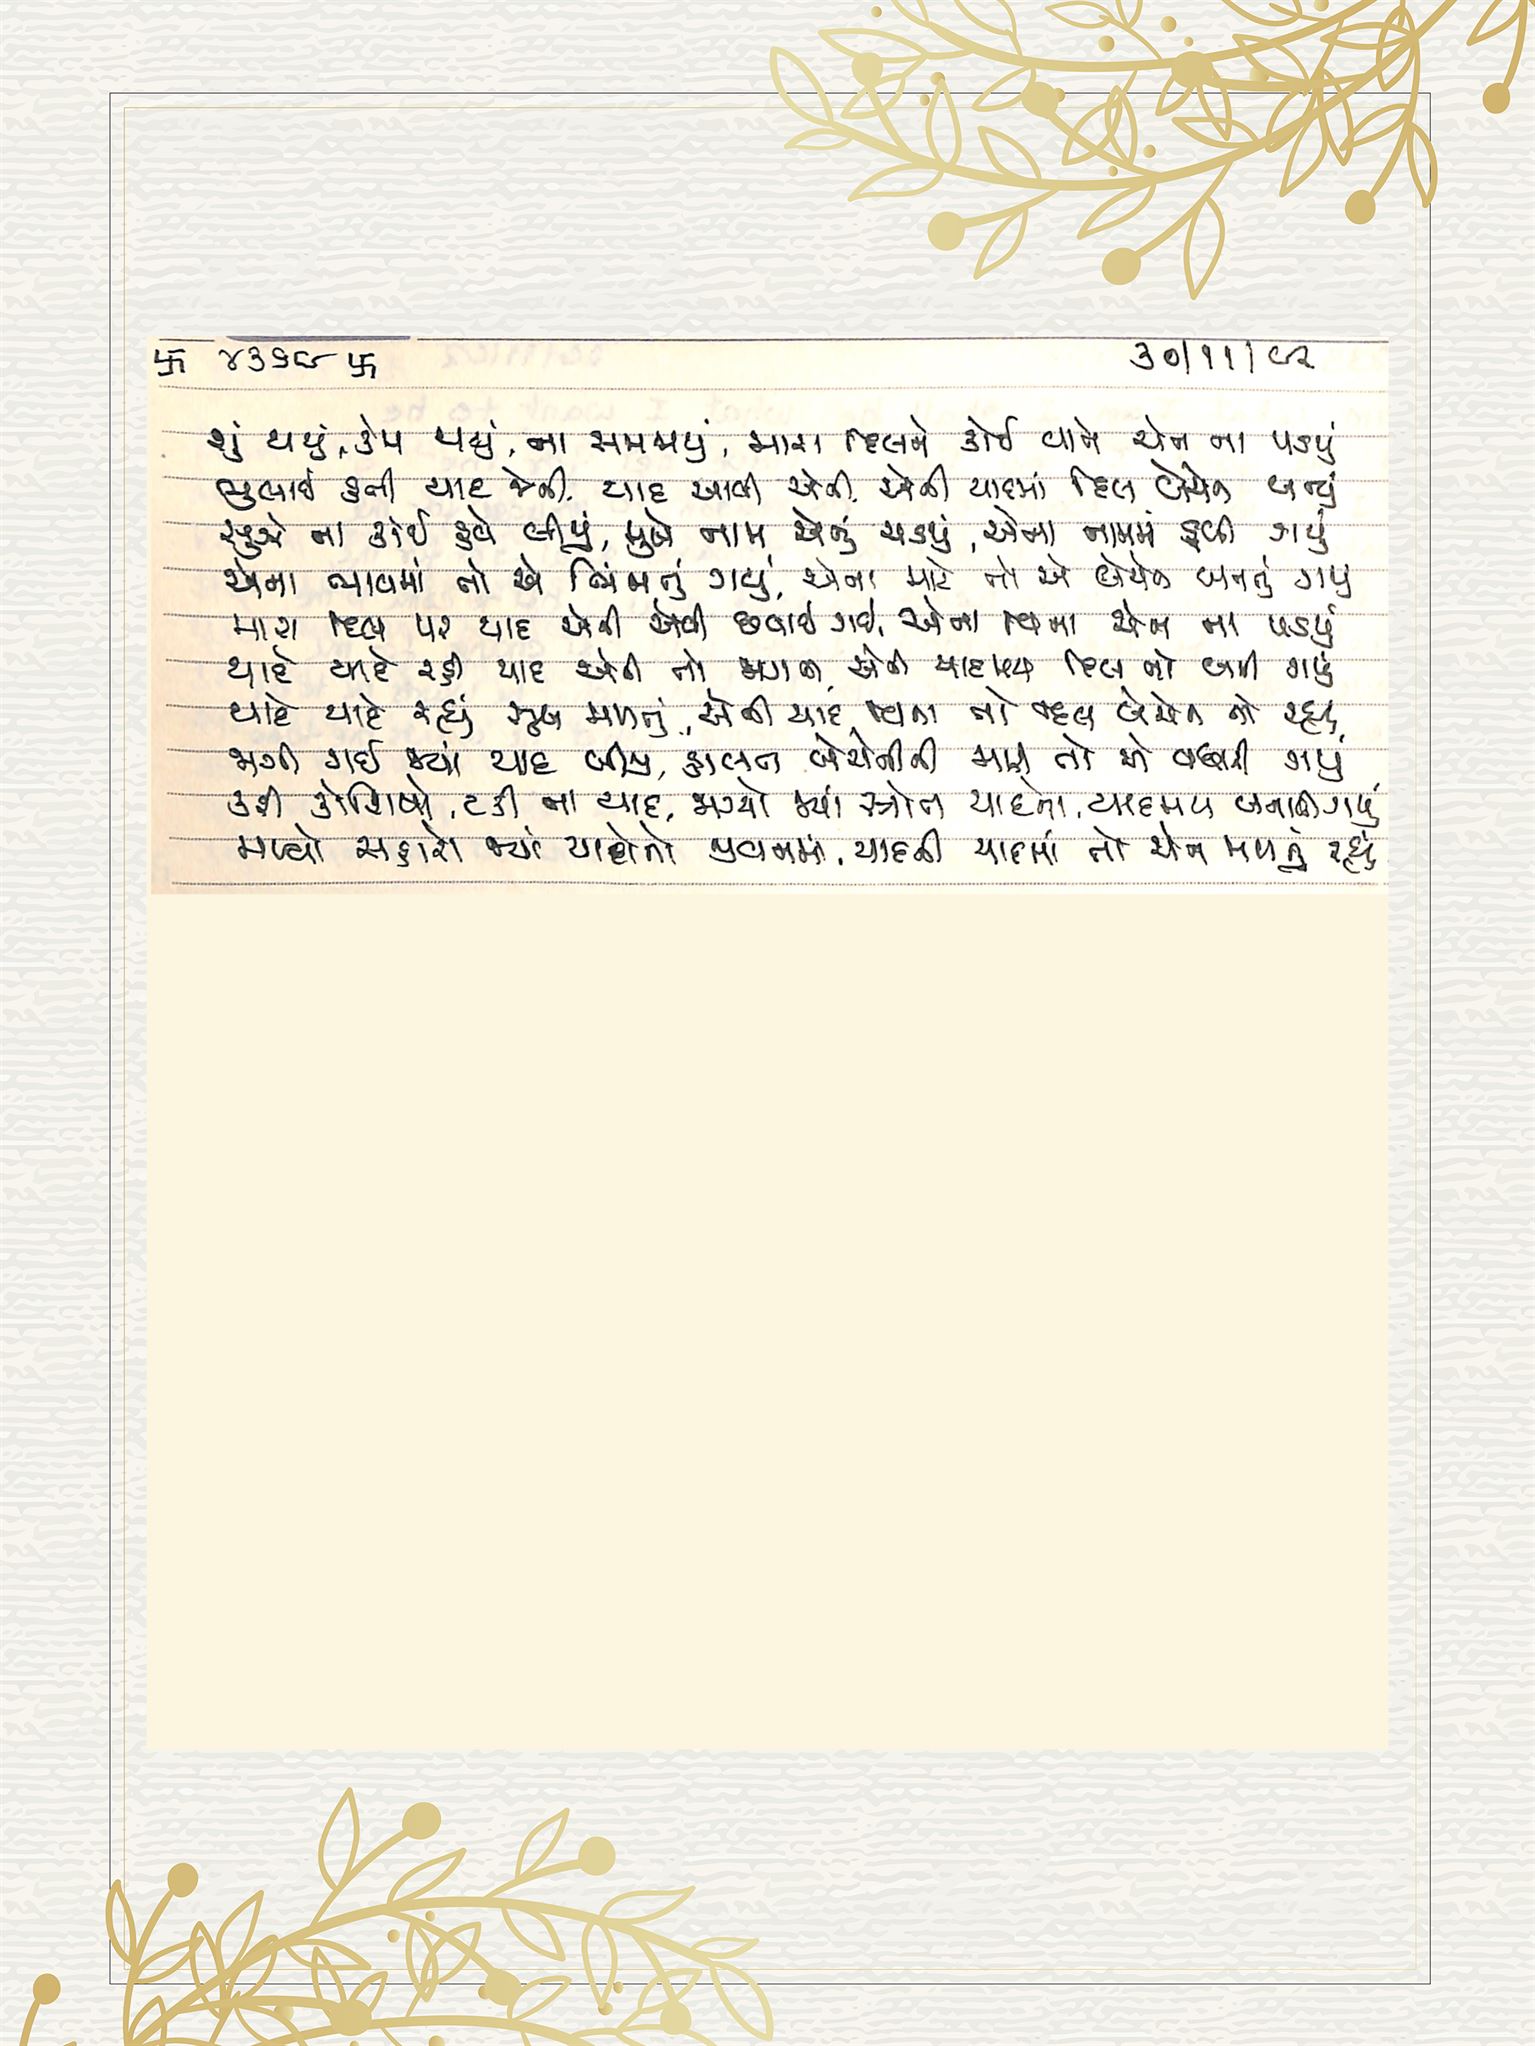 卐 ૪૩૬૯ 卐 ૩૦/૧૧/૯૨
શું થયું, કેમ થયું, ના સમજાયું, મારા દિલને કોઈ વાતે ચેન ના પડયું
ભુલાઈ હતી યાદ જેની, યાદ આવી એની, એની યાદમાં દિલ બેચેન બન્યું
સુઝે ના કોઈ હવે બીજું, મુખે નામ એનું ચડયું, એના નામમાં ડૂબી ગયું
એના ભાવમાં તો એ ભિંજાતું ગયું, એના માટે તો એ બેચેન બનતું ગયું
મારા દિલ પર યાદ એની એવી છવાઈ ગઈ, એના વિના ચેન ના પડયું
યાદે યાદે રહી યાદ એની તો જાગતી, એની યાદમય દિલ તો બની ગયું
યાદે યાદે રહ્યું સુખ મળતું, એની યાદ વિના તો દિલ બેચેન તો રહ્યું
જાગી ગઈ જ્યાં યાદ બીજી, હાલત બેચેનીની મારી તો એ વધારી ગયું
કરી કોશિષો, ટકી ના યાદ, જાગ્યો જ્યાં સ્ત્રોત યાદનો, યાદમય બનાવી ગયું
મળ્યો સહારો જ્યાં યાદોનો જીવનમાં, યાદની યાદમાં તો ચેન મળતું રહ્યું